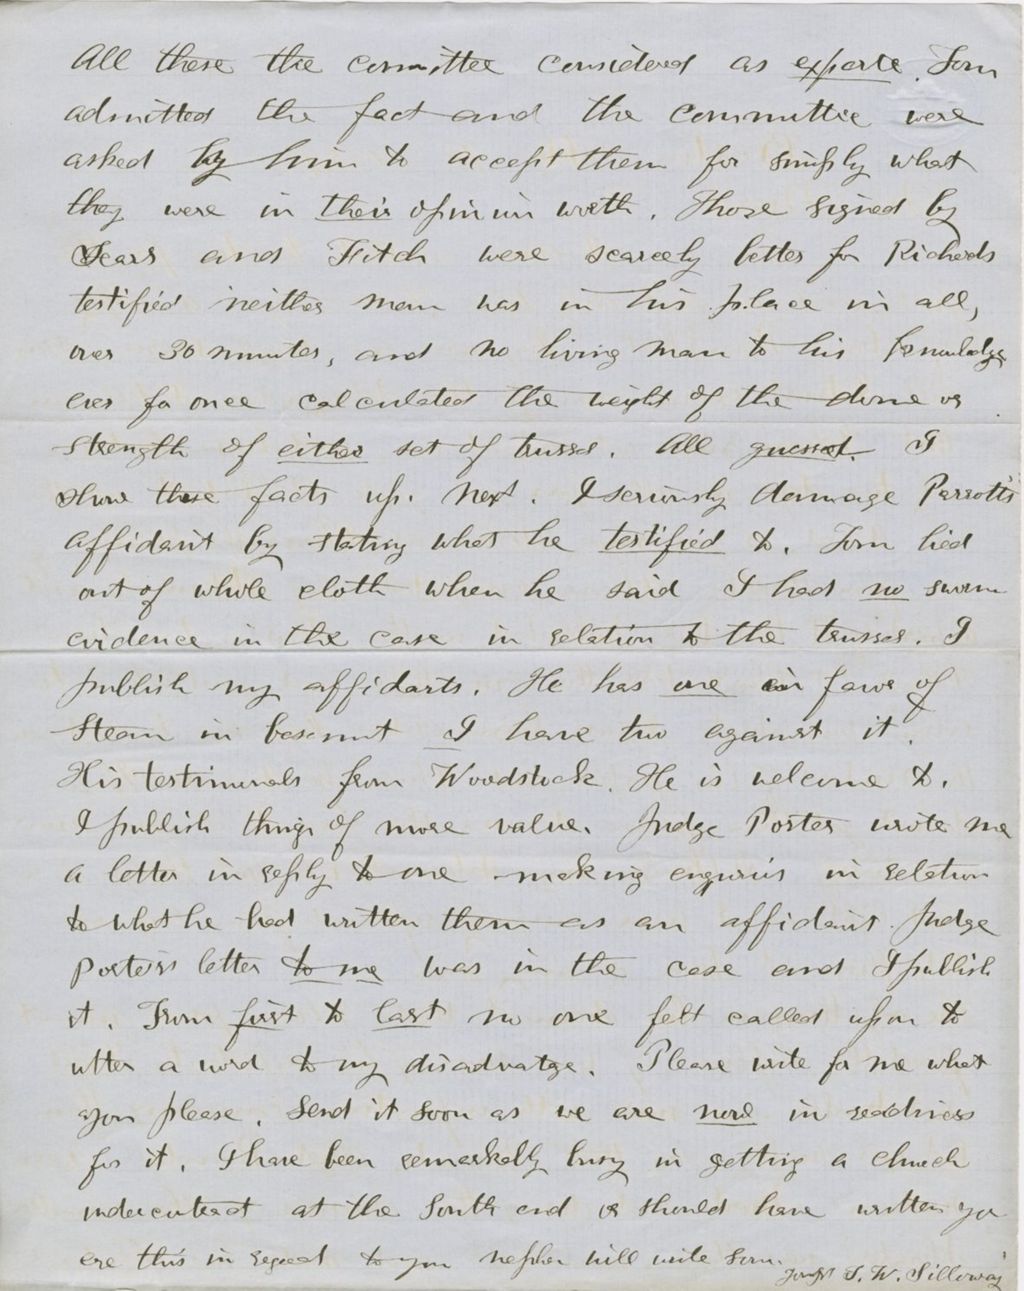 All these the committee considered as exparte. Tom
admitted the fact and the committee were
asked by him to accept them for simply what
they were in their opinion worth. Those signed by
Sears and Fitch were scarcely better for Richards
testified neither man was in his place in all,
over 30 minutes, and no living man to his knowledge
ever for once calculated the weight of the dome or
strength of either set of trusses. All guessed. I
show these facts up. Next. I seriously damage Parrott's
affidavit by stating what he testified to. Tom lied
out of whole cloth when he said I had no sworn
evidence in the case in relation to the trusses. I
publish my affidavits. He has one in favor of
Steam in basement I have two against it.
His testimonials from Woodstock. He is welcome to.
I publish things of more value. Judge Porter wrote me
a letter in reply to one making enquiries in relation
to what he had written them as an affidavit. Judge
Porters letter to me was in the case and I publish
it. From first to last no one felt called upon to
utter a word to my disadvatge. Please write for me what
you please. Send it soon as we are now in readiness
for it. I have been remarkably busy in getting a church
under contract at the South end or should have written you
ere this in regard to your nephew will write soon.
T. W. Silloway